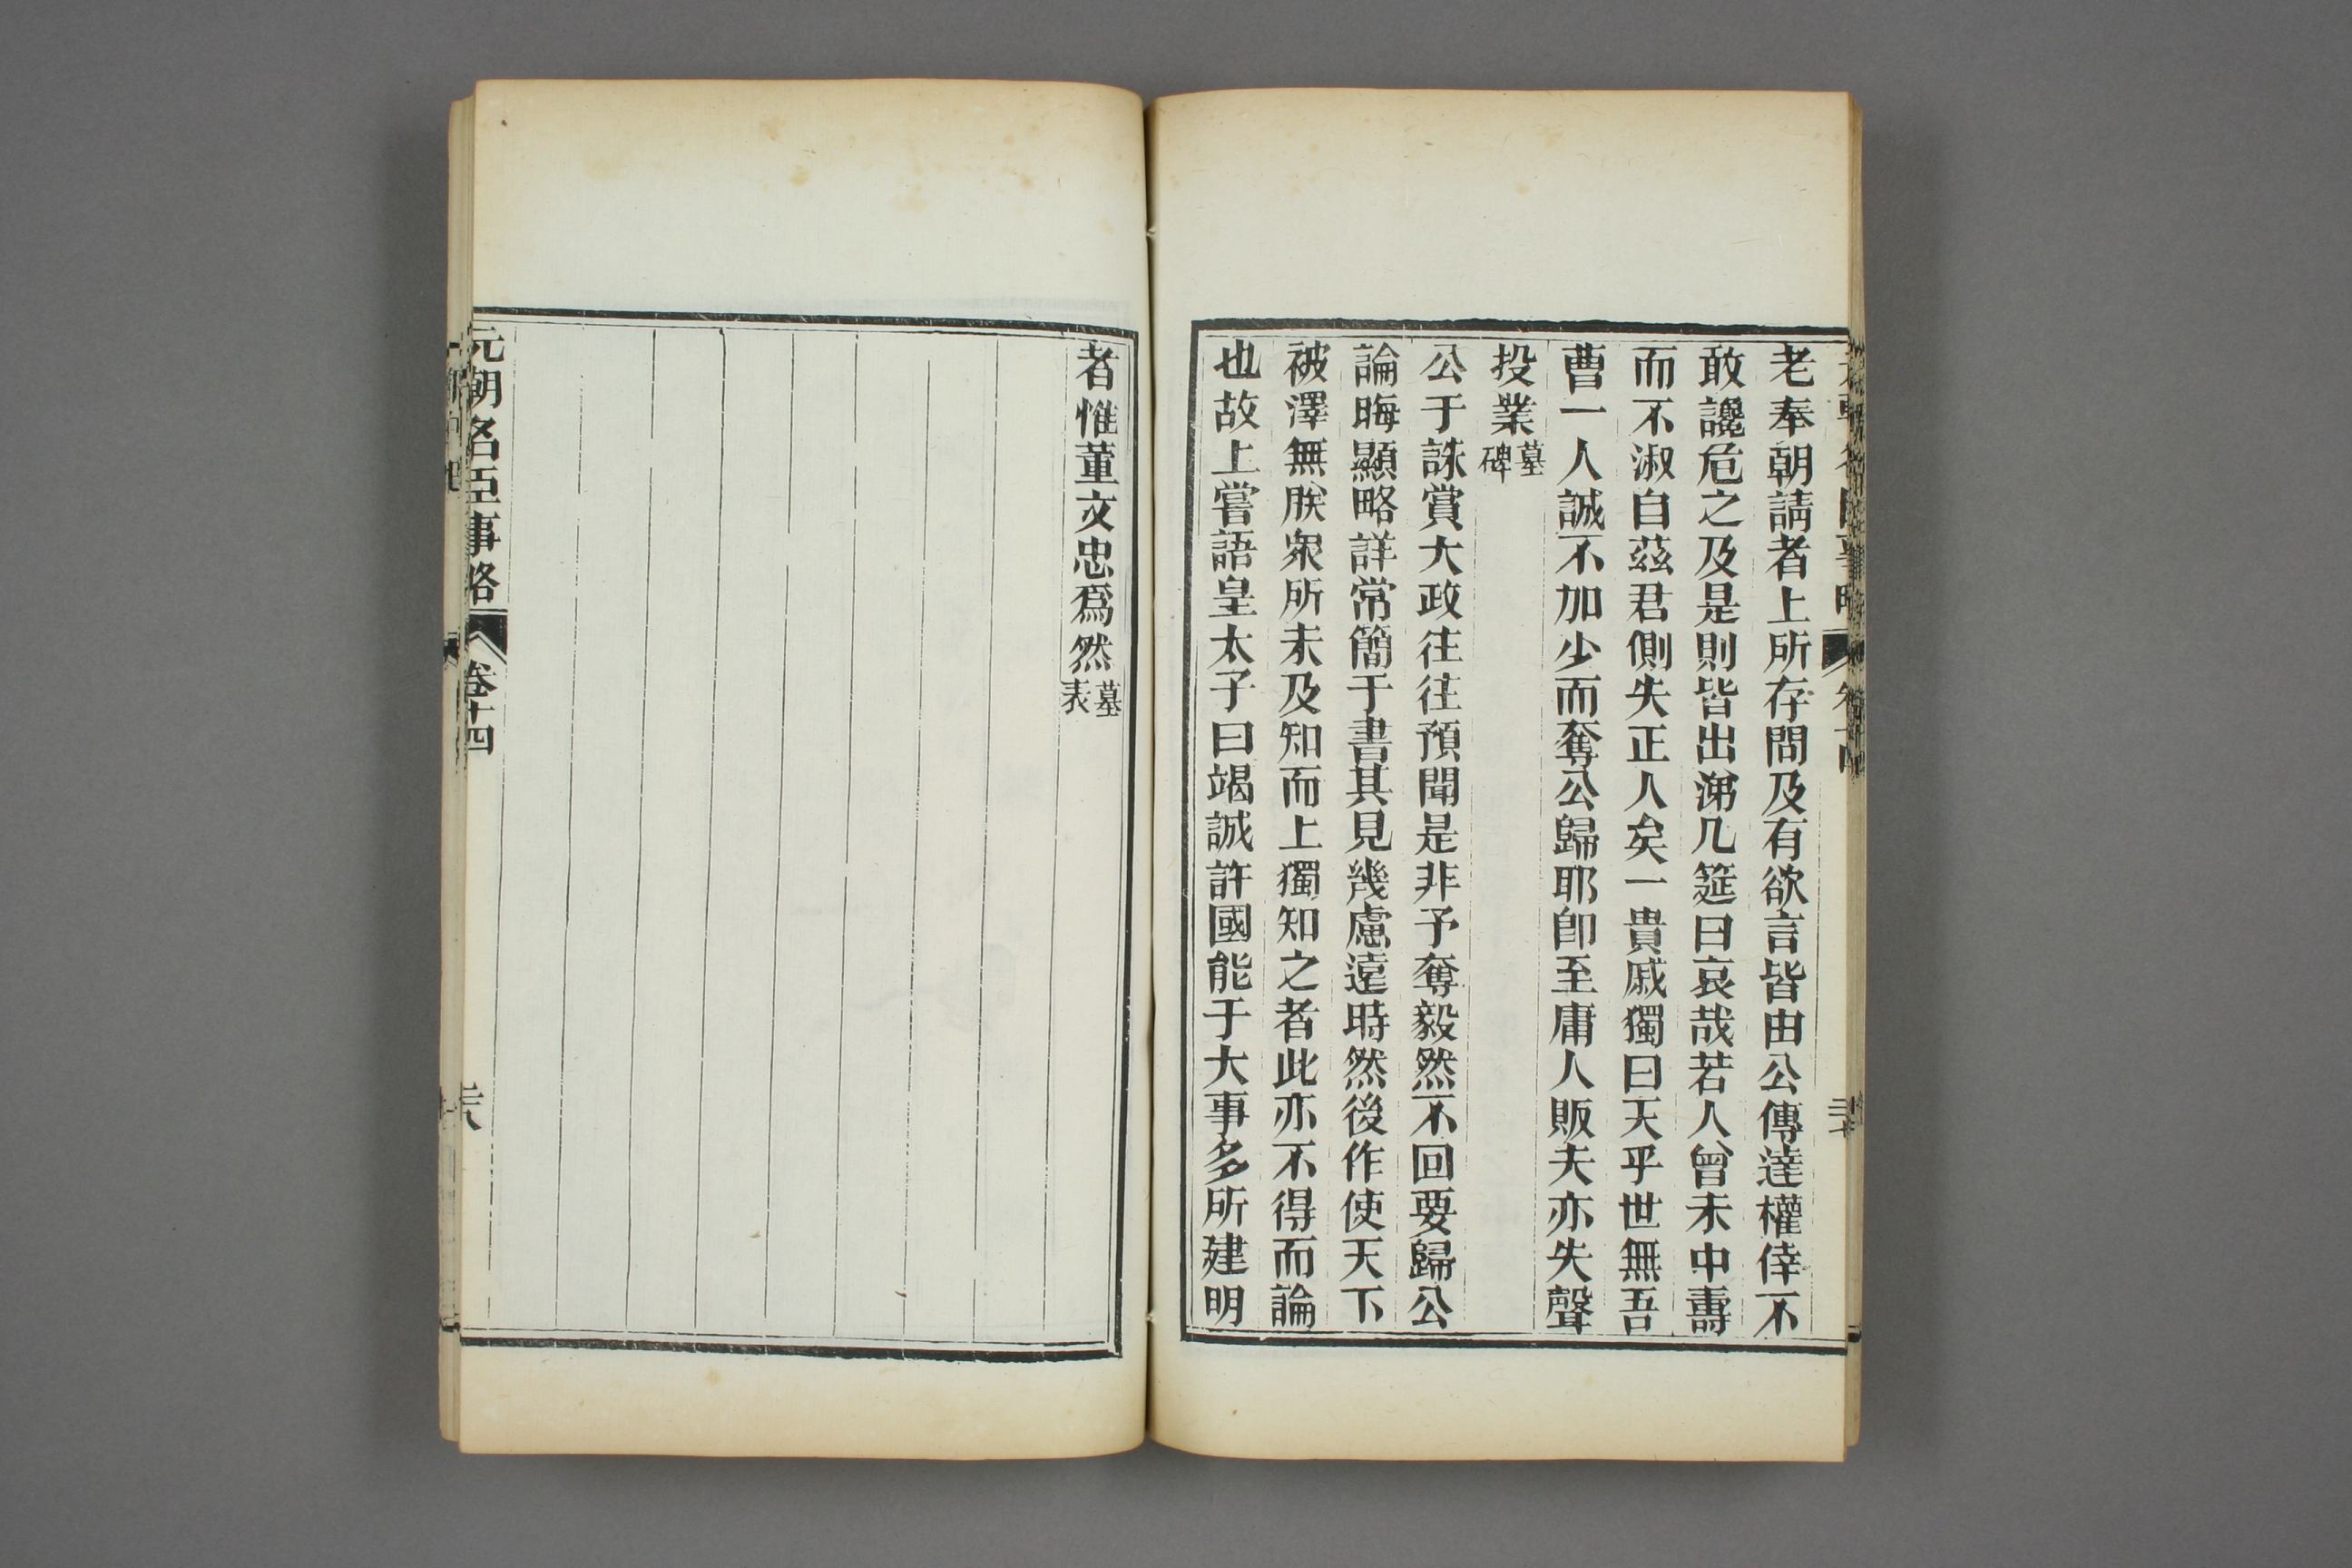 老奉朝請者上所存問及有欲言皆由公傳達權倖不
敢讒危之及是則皆出涕几筵曰哀哉若人曾未中壽
而不淑自茲君側失正人矣一貴戚獨曰天乎世無吾
曹一人誠不加少而奪公歸耶卽至庸人販夫亦失聲
投業墓碑
公于誅賞大政往往預聞是非予奪毅然不回要歸公
論晦顯略詳常簡于書其見幾慮遠時然後作使天下
被澤無朕衆所未及知而上獨知之者此亦不得而論
也故上嘗語皇太子曰竭誠許國能于大事多所建明
者惟董文忠爲然墓表
元朝名臣事略 卷十四